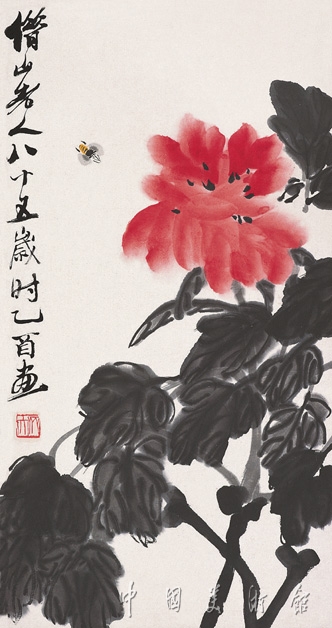 借山老人八十五歲时乙酉画
中國美術館